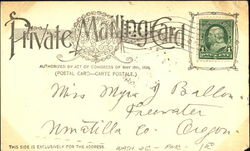 Private Mailing Card
AUTHORIZED BY ACT OF CONGRESS OF MAY 19th, 1898.
(POSTAL CARD—CARTE POSTALE.)
Miss Myra Ballou
Freewater
Umatilla Co. Oregon.
THIS SIDE IS EXCLUSIVELY FOR THE ADDRESS.